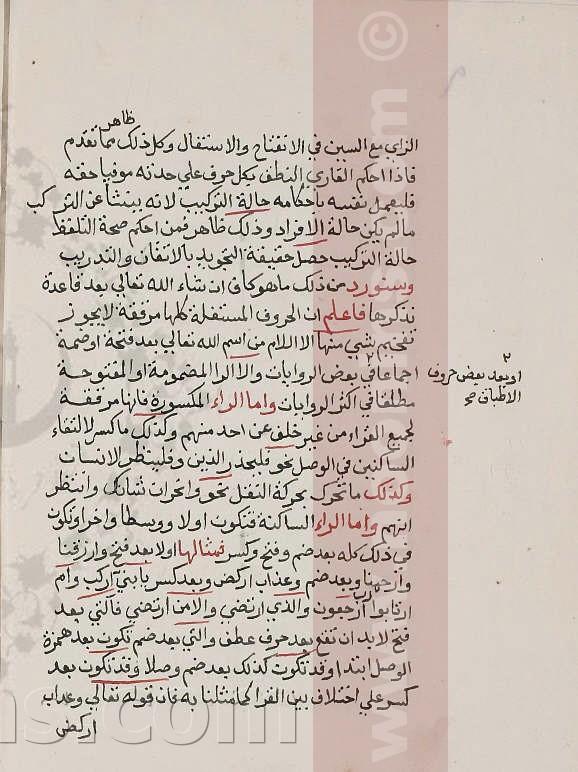 ظاهر
الزاي مع السين في الانفتاح والاستفال وكل ذلك مما تقدم
فاذا احكم القاري النطق بكل حرف علي حدته موفيا حقه
فليعمل نفسه باحكامه حالة التركيب لانه ينشا عن التركيب
ما لم يكن حالة الافراد وذلك ظاهر فمن احكم صحة التلفظ
حالة التركيب حصل حقيقة التجويد بالاتقان والتدريب
وسنورد من ذلك ما هو كاف ان شاء الله تعالي بعد قاعدة
نذكرها فاعلم ان الحروف المستفلة كلها مرققة لا يجوز
تفخيم شي منها الا اللام من اسم الله تعالي بعد فتحة او ضمة
اجماعا ٢ في بعض الروايات والا الرا المضمومة او المفتوحة
٢ او بعد بعض حروف
الاطباق صح
مطلقا في اكثر الروايات واما الراء المكسورة فانها مرققة
لجميع القراء من غير خلف عن احد منهم وكذلك ما كسر لالتقاء
الساكنين في الوصل نحو فليحذر الذين وفلينظر الانسان
وكذلك ما تحرك بحركة النقل نحو وانحر ان شانئك وانتظر
انهم واما الراء الساكنة فتكون اولا ووسطا واخرا وتكون
في ذلك كله بعد ضم وفتح وكسر فمثالها اولا بعد فتح وارزقنا
وارحمنا وبعد ضم وعذاب اركض وبعد كسر يا بني اركب وام
ارتابوا رب ارجعون والذي ارتضي والا من ارتضي فالتي بعد
فتح لا بد ان تقع بعد حرف عطف والتي بعد ضم تكون بعد همزة
الوصل ابتدا وقد تكون كذلك بعد ضم وصلا وقد تكون بعد
كسر علي اختلاف بين القرا كما مثلنا به فان قوله تعالي وعذاب
اركض
www.
ms.com
©